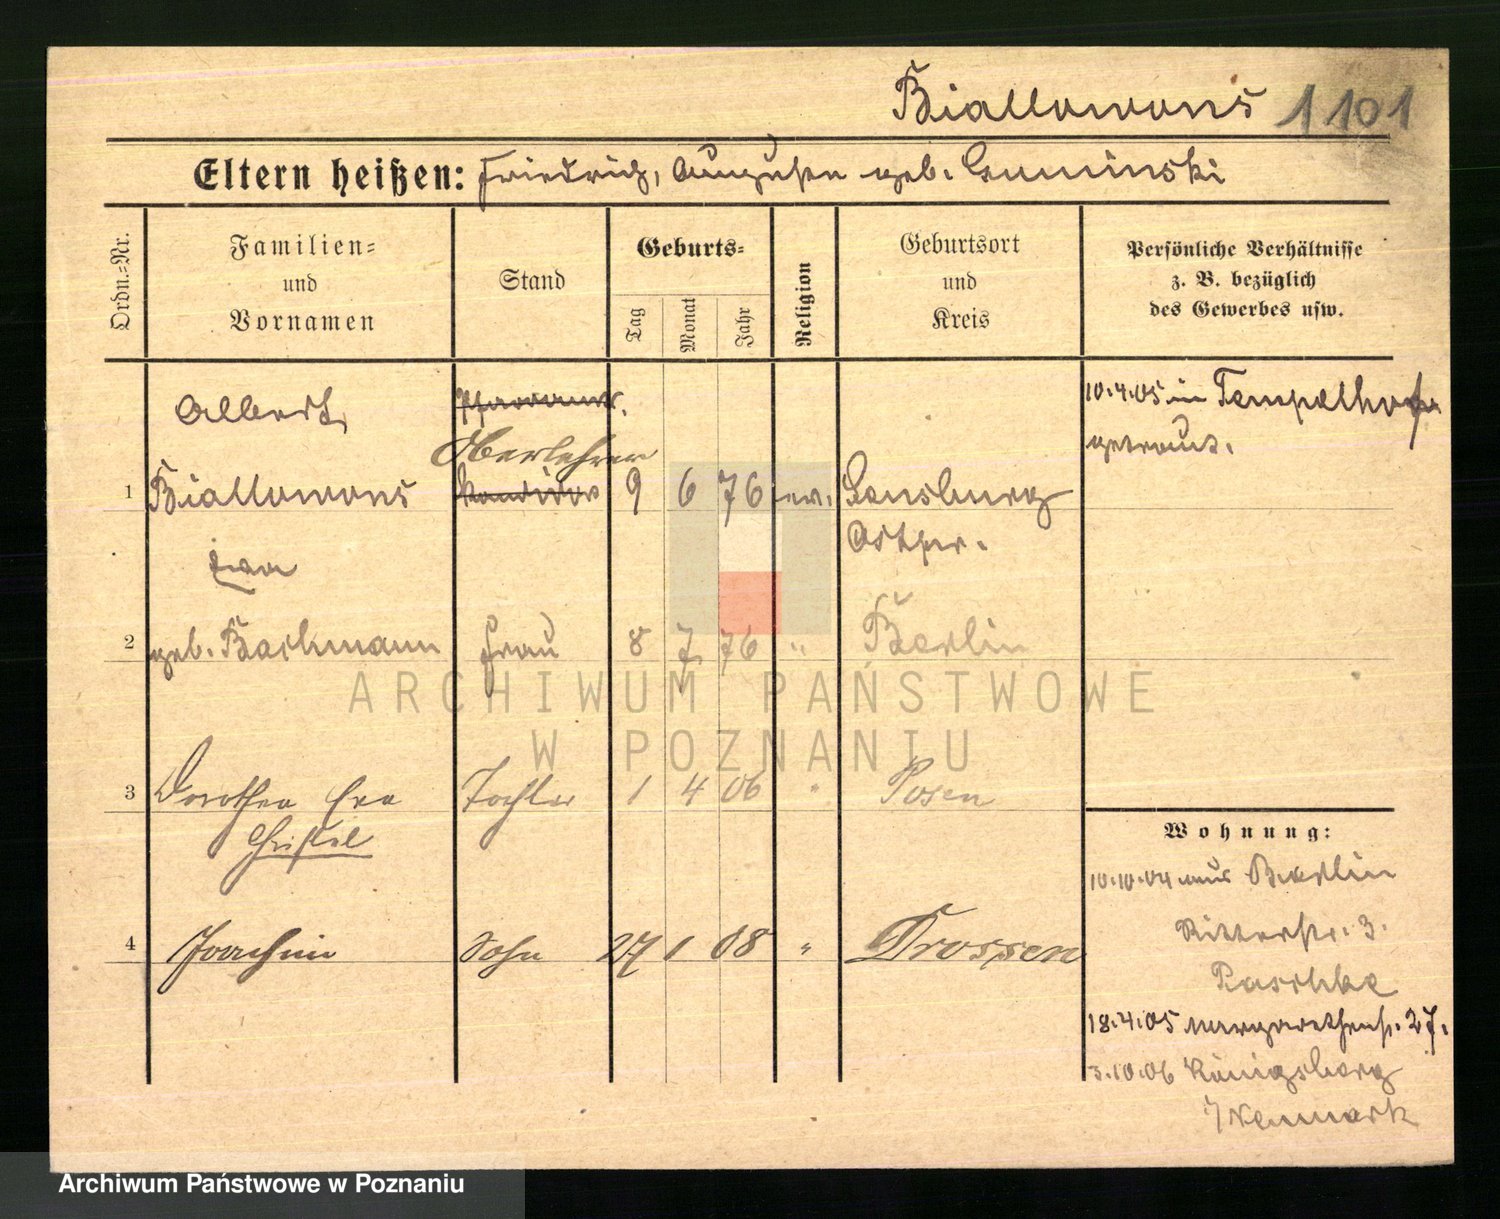 Biallowons 1101
Eltern heißen: Friedrich, Auguste geb. Guminski
Ordn.-Nr.
Familien-
und
Vornamen
Stand
Geburts-
Tag
Monat
Jahr
Religion
Geburtsort
und
Kreis
Persönliche Verhältnisse
z. B. bezüglich
des Gewerbes usw.
Albert,
Oberlehrer
1 Biallowons Kandidat 9 6 76 ev. Sensburg
Ostpr.
10.4.05 in Tempelhof
getraut.
Eva
2 geb. Bachmann Frau 8 7. 76 " Berlin
3 Dorothea Eva Tochter 1 4 06 " Posen
Christel
4 Joachim Sohn 27 1 08 " Drossen
Wohnung:
10.10.04 aus Berlin
Ritterstr. 3.
Paschke
18.4.05 Margarethenstr. 27.
3.10.06 Königsberg
i/Neumark
ARCHIWUM PAŃSTWOWE
W POZNANIU
Archiwum Państwowe w Poznaniu